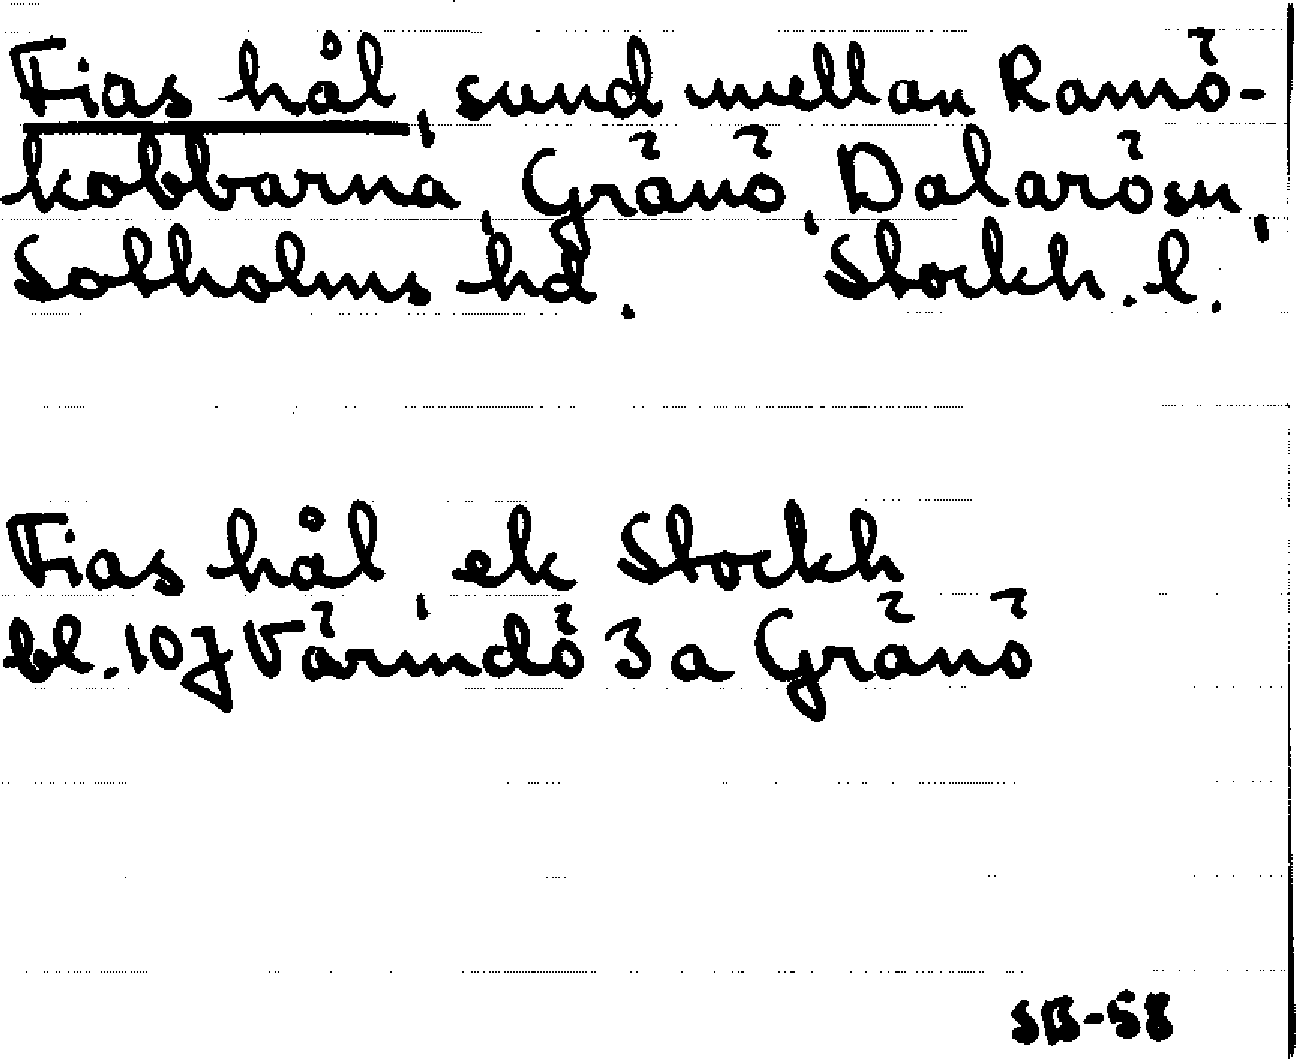 Fias hål, sund mellan Ramsö-
kobbarna, Gränö, Dalarö sn,
Sotholms hd. Stockh. l.
Fias hål, ek Stockh
bl. 10 J Värindö 3 a Gränö
SB-58